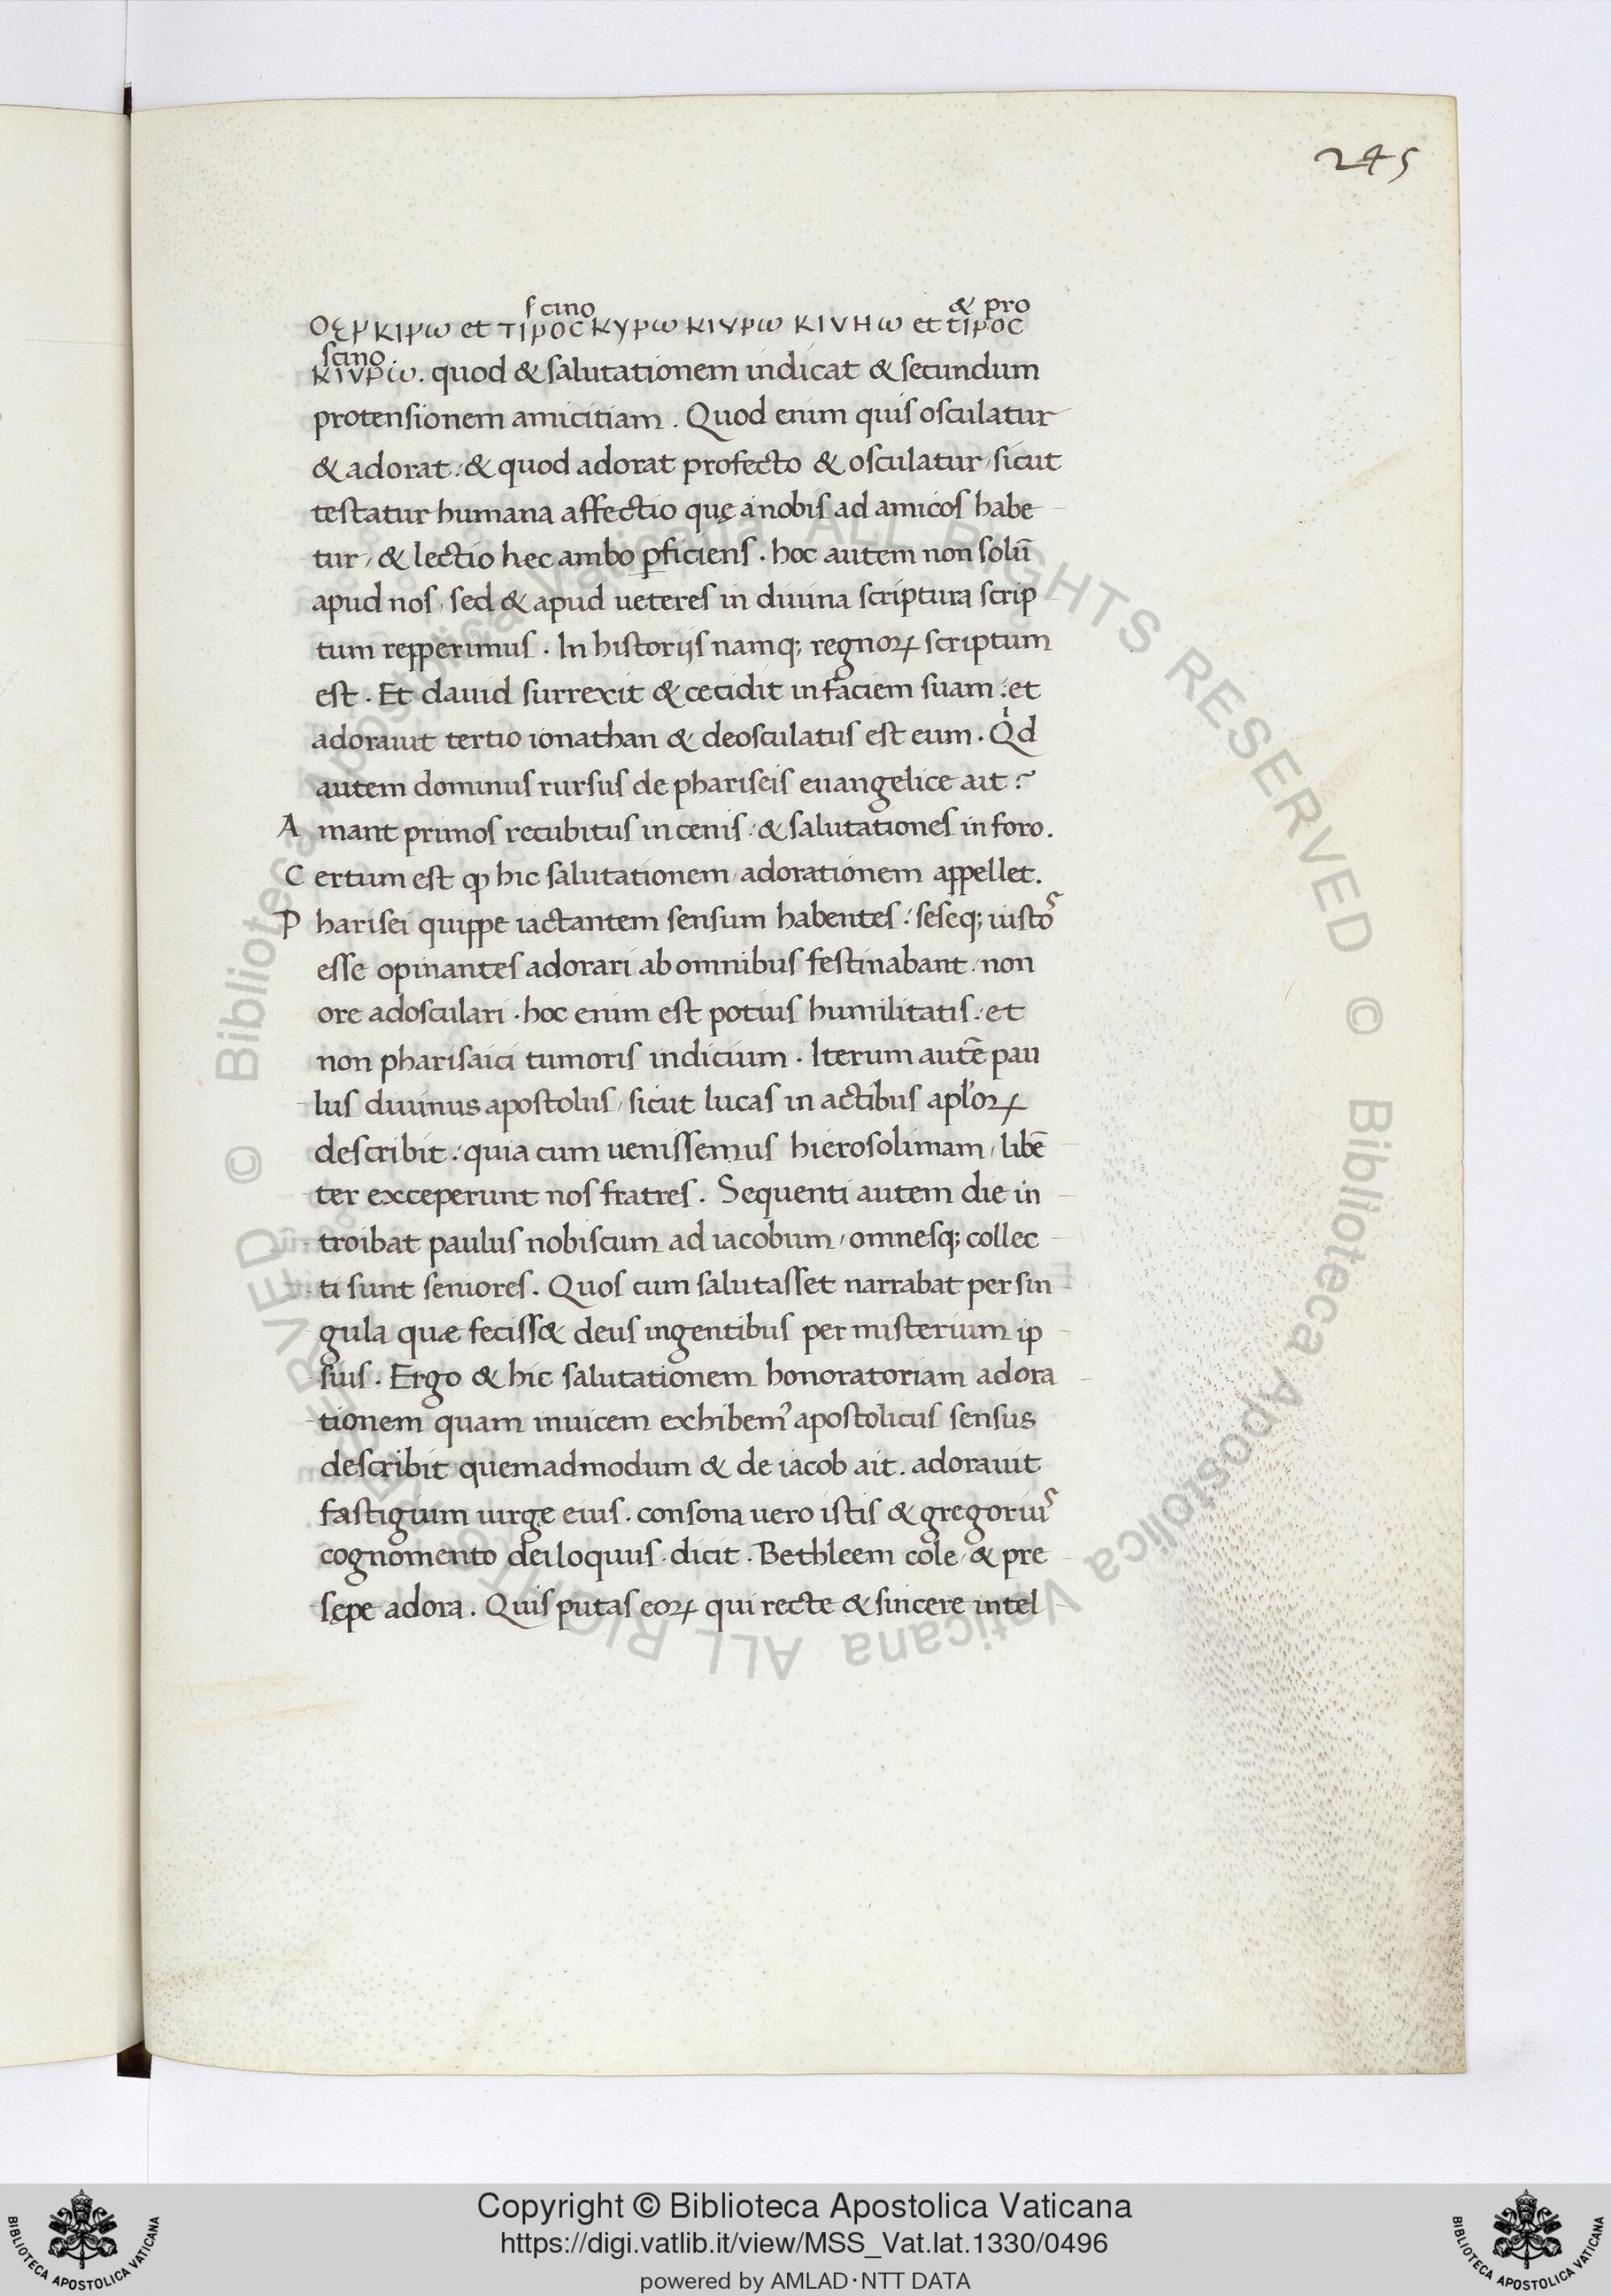 245
scino & pro
ΟϚΡ ΚΙΡω et ΤΙΡΟC ΚΥΡω ΚΙΥΡω ΚΙVΗω et tΙΡΟC
scino
ΚΙVΡω. quod & salutationem indicat & secundum
protensionem amicitiam. Quod enim quis osculatur
& adorat: & quod adorat profecto & osculatur, sicut
testatur humana affectio quę a nobis ad amicos habe
tur, & lectio hec ambo ꝑficiens. hoc autem non solū
apud nos, sed & apud ueteres in diuina scriptura scrip
tum repperimus. In historijs namq; regnoꝝ scriptum
est. Et dauid surrexit & cecidit in faciem suam: et
adorauit tertio ionathan & deosculatus est eum. Qͥd
autem dominus rursus de phariseis euangelice ait?
A mant primos recubitus in cenis: & salutationes in foro.
C ertum est ꝙ hic salutationem, adorationem appellet.
P harisei quippe iactantem sensum habentes: seseq; iustoˢ
esse opinantes adorari ab omnibus festinabant. non
ore adosculari. hoc enim est potius humilitatis: et
non pharisaici tumoris indicium. Iterum autē pau
lus diuinus apostolus, sicut lucas in actibus apl'oꝝ
describit: quia cum uenissemus hierosolimam, libē
ter exceperunt nos fratres. Sequenti autem die in
troibat paulus nobiscum ad iacobum, omnesq; collec
ti sunt seniores. Quos cum salutasset narrabat per sin
gula quæ feciss& deus in gentibus per misterium ip
sius. Ergo & hic salutationem honoratoriam adora
tionem quam inuicem exhibem⁹ apostolicus sensus
describit quemadmodum & de iacob ait. adorauit
fastigium uirgę eius. consona uero istis & gregoriuˢ
cognomento deiloquus. dicit. Bethleem cole, & pre
sępe adora. Quis putas eoꝝ qui recte & sincere intel
© Biblioteca Apostolica Vaticana ALL RIGHTS RESERVED © Biblioteca Apostolica Vaticana ALL RIGHTS RESERVED
Copyright © Biblioteca Apostolica Vaticana
https://digi.vatlib.it/view/MSS_Vat.lat.1330/0496
powered by AMLAD·NTT DATA
BIBLIOTECA APOSTOLICA VATICANA
BIBLIOTECA APOSTOLICA VATICANA